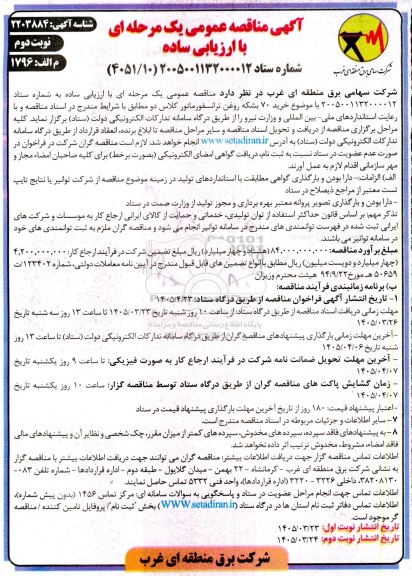 شرکت سهامی برق منطقه ای غرب
آگهی مناقصه عمومی یک مرحله ای
با ارزیابی ساده
شماره ستاد ۲۰۰۵۰۰۱۱۳۲۰۰۰۰۱۲ (۴۰۵۱/۱۰)
شناسه آگهی: ۲۲۰۳۸۸۴
نوبت دوم
م الف: ۱۷۹۶
شرکت سهامی برق منطقه ای غرب در نظر دارد مناقصه عمومی یک مرحله ای با ارزیابی ساده به شماره ستاد
۲۰۰۵۰۰۱۱۳۲۰۰۰۰۱۲ با موضوع خرید ۷۰ بشکه روغن ترانسفورماتور کلاس دو مطابق با شرایط مندرج در اسناد مناقصه و با
رعایت استانداردهای ملی - بین المللی و وزارت نیرو را از طریق درگاه سامانه تدارکات الکترونیکی دولت (ستاد) برگزار نماید. کلیه
مراحل برگزاری مناقصه از دریافت و تحویل اسناد مناقصه و سایر مراحل مناقصه تا ابلاغ برنده، انعقاد قرارداد از طریق درگاه سامانه
تدارکات الکترونیکی دولت (ستاد) به آدرس www.setadiran.ir انجام خواهد شد. لازم است مناقصه گران شرکت در فراخوان در
صورت عدم عضویت در ستاد نسبت به ثبت نام، دریافت گواهی امضای الکترونیکی (بصورت برخط) برای کلیه صاحبان امضاء مجاز و
مهر سازمانی اقدام لازم به عمل آورند.
الف) الزامات:- دارا بودن و بارگذاری گواهی مطابقت با استانداردهای تولید در زمینه موضوع مناقصه از شرکت توانیر یا نتایج تایپ
تست معتبر از مراجع ذیصلاح در ستاد
- دارا بودن و بارگذاری تصویر پروانه معتبر بهره برداری و مجوز تولید از وزارت صمت در ستاد
تذکر مهم: بر اساس قانون حداکثر استفاده از توان تولیدی، خدماتی و حمایت از کالای ایرانی ارجاع کار به موسسات و شرکت های
ایرانی ثبت شده در فهرست توانمندی های مندرج در سامانه توانیر انجام می شود و مناقصه گران ملزم به ثبت توانمندی های خود
در سامانه توانیر می باشند.
مبلغ برآورد مناقصه: ۸۴,۰۰۰,۰۰۰,۰۰۰ (هشتاد و چهار میلیارد) ریال مبلغ تضمین شرکت در فرآیند ارجاع کار: ۴,۲۰۰,۰۰۰,۰۰۰
(چهار میلیارد و دویست میلیون) ریال مطابق با انواع تضمین های قابل قبول مندرج در آیین نامه معاملات دولتی، شماره ۱۲۳۴۰۲/ت
۵۰۶۵۹ هـ مورخ ۹۴/۹/۲۲ هیئت محترم وزیران
ب) برنامه زمانبندی فرآیند مناقصه:
۱- تاریخ انتشار آگهی فراخوان مناقصه از طریق درگاه ستاد: ۱۴۰۵/۴/۲۳
مهلت زمانی دریافت اسناد مناقصه از طریق درگاه ستاد: از ساعت ۱۰ روز شنبه تاریخ ۱۴۰۵/۰۳/۲۳ تا ساعت ۱۳ روز سه شنبه تاریخ
۱۴۰۵/۰۳/۲۶
مهلت زمانی بارگذاری پیشنهادهای مناقصه گران از طریق درگاه سامانه تدارکات الکترونیکی دولت (ستاد) تا ساعت ۱۳ روز
شنبه تاریخ ۱۴۰۵/۰۴/۰۶
- آخرین مهلت تحویل ضمانت نامه شرکت در فرآیند ارجاع کار به صورت فیزیکی: تا ساعت ۹ روز یکشنبه تاریخ
۱۴۰۵/۰۴/۰۷
- زمان گشایش پاکت های مناقصه گران از طریق درگاه ستاد توسط مناقصه گزار: ساعت ۱۰ روز یکشنبه تاریخ
۱۴۰۵/۰۴/۰۷
- اعتبار پیشنهاد قیمت: ۱۸۰ روز از تاریخ آخرین مهلت بارگذاری پیشنهاد قیمت در ستاد
۷- سایر اطلاعات و جزئیات مربوطه در اسناد مناقصه مندرج است.
۸- به پیشنهادهای فاقد سپرده، سپرده های مخدوش، سپرده های کمتر از میزان مقرر، چک شخصی و نظایر آن و پیشنهادهای مالی
فاقد امضاء، مشروط، مخدوش ترتیب اثر داده نخواهد شد.
اطلاعات تماس مناقصه گزار جهت دریافت اطلاعات بیشتر: مناقصه گران می توانند جهت دریافت اطلاعات بیشتر با مناقصه گزار
به نشانی شرکت برق منطقه ای غرب - کرمانشاه - ۲۲ بهمن - میدان گلایول - طبقه دوم - اداره قراردادها - شماره تلفن ۰۸۳-
۳۸۲۰۸۱۳۰ داخلی ۳۲۲۶ - ۳۲۲۰ (اداره قراردادها)، واحد فنی ۵۳۳۲ تماس حاصل نمایند.
اطلاعات تماس جهت انجام مراحل عضویت در ستاد و پاسخگویی به سوالات سامانه ای: مرکز تماس ۱۴۵۶ (بدون پیش شماره)،
اطلاعات تماس دفاتر ثبت نام استان ها در درگاه ستاد (www.setadiran.ir) بخش "ثبت نام"/ پروفایل تامین کننده / مناقصه
گر موجود است.
تاریخ انتشار نوبت اول: ۱۴۰۵/۰۳/۲۳
تاریخ انتشار نوبت دوم: ۱۴۰۵/۰۳/۲۴
شرکت برق منطقه ای غرب